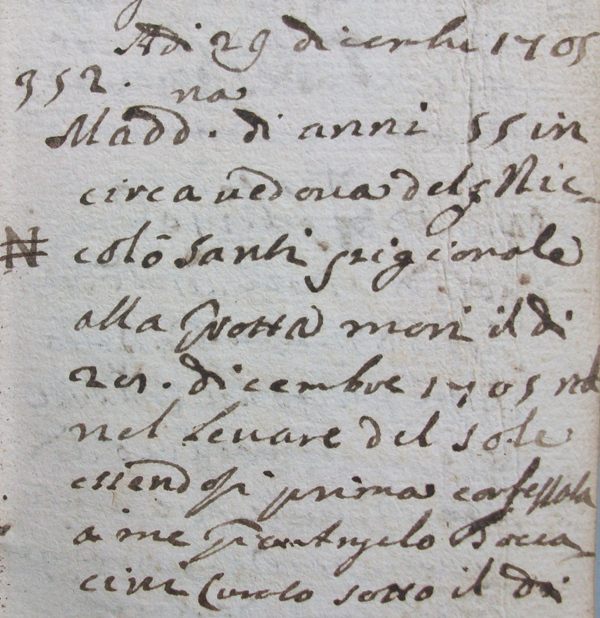 Adi 29 dicembre 1705
352.
na
Madd. di anni 55 in
circa vedova del q Nic-
N colò Santi pigionale
alla Grotta morì il di
29. dicembre 1705
nel levare del sole
essendosi prima confessata
a me Gio Angelo Bocca-
cini Curato sotto il di